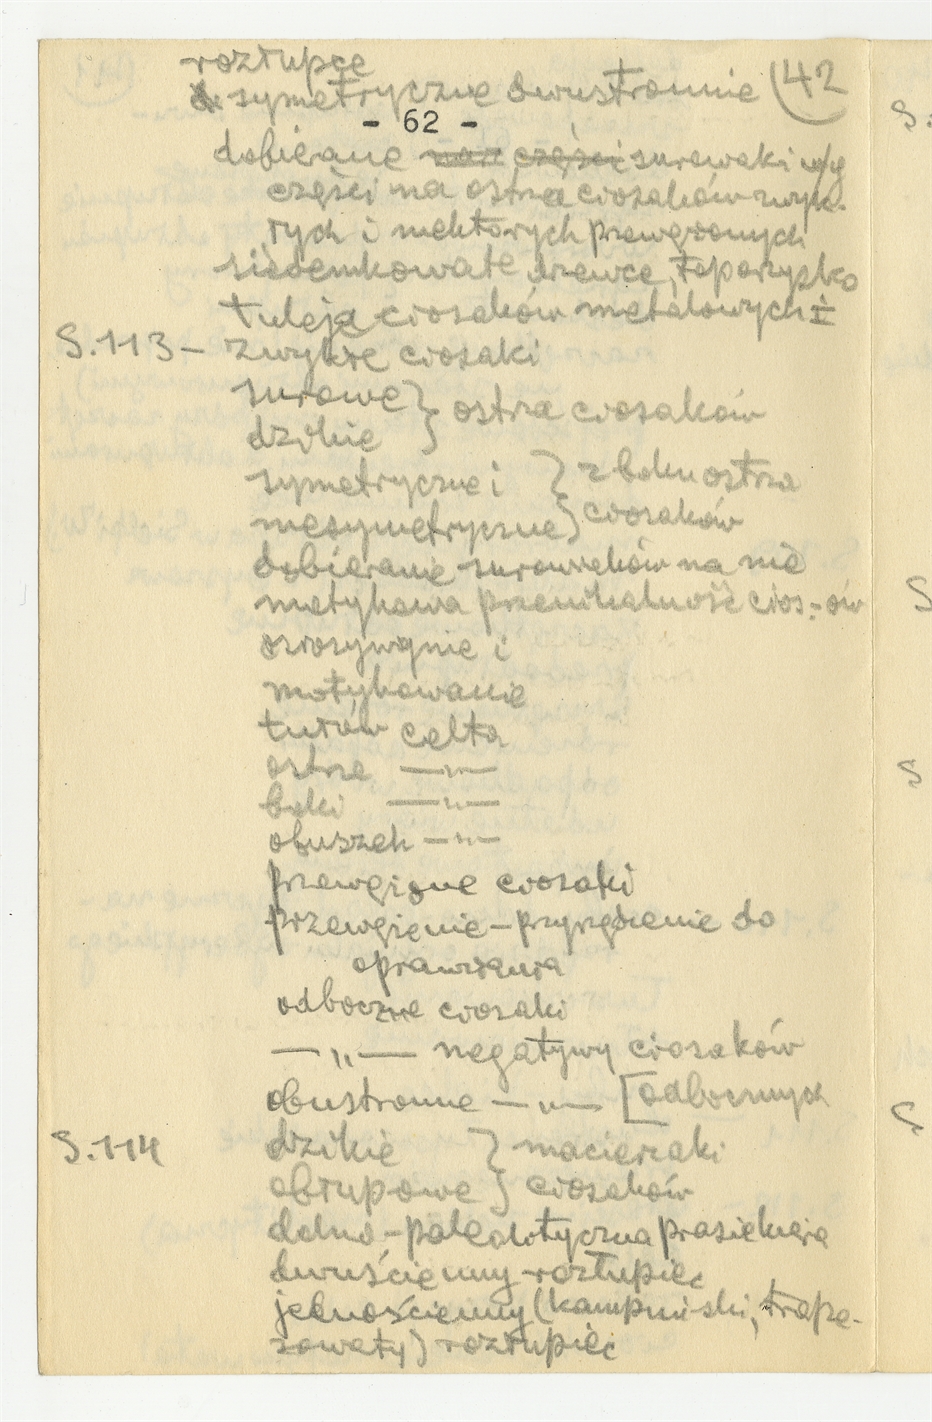 roztupcę
symetryczne dwustronnie (42
- 62 -
dobierane części surowaki w/g
części na ostrza ciosaków zwyk-
łych i niektórych przewężonych
siedemkowate drzewce, toporzysko
tuleja ciosaków metalowych i
S.113 - zwykłe ciosaki
surowe } ostrza ciosaków
dzikie
symetryczne i } z boku ostrza
niesymetryczne } ciosaków
dobieranie surowiaków na nie
motykowa przenikalność cios-ów
motykowanie
tułów celta
ostrze —"—
boki —"—
obuszek —"—
przewężone ciosaki
przewężenie - przyrządzenie do
oprawiania
odboczne ciosaki
—"— negatywy ciosaków
obustronne —"— [odbocznych
S.114 dzikie } macierzaki
obłupowe } ciosaków
dolno-paleolityczna prasiekiera
dwuścienny roztupiec
jednościenny (kampinski, trape-
zowaty) roztupiec